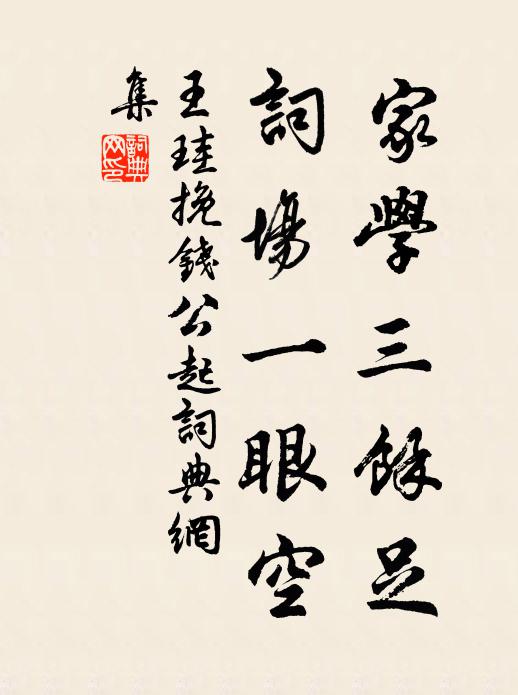 家學三餘足
詞場一眼空
王珪挽錢公起詞典網
集
詞典
网印